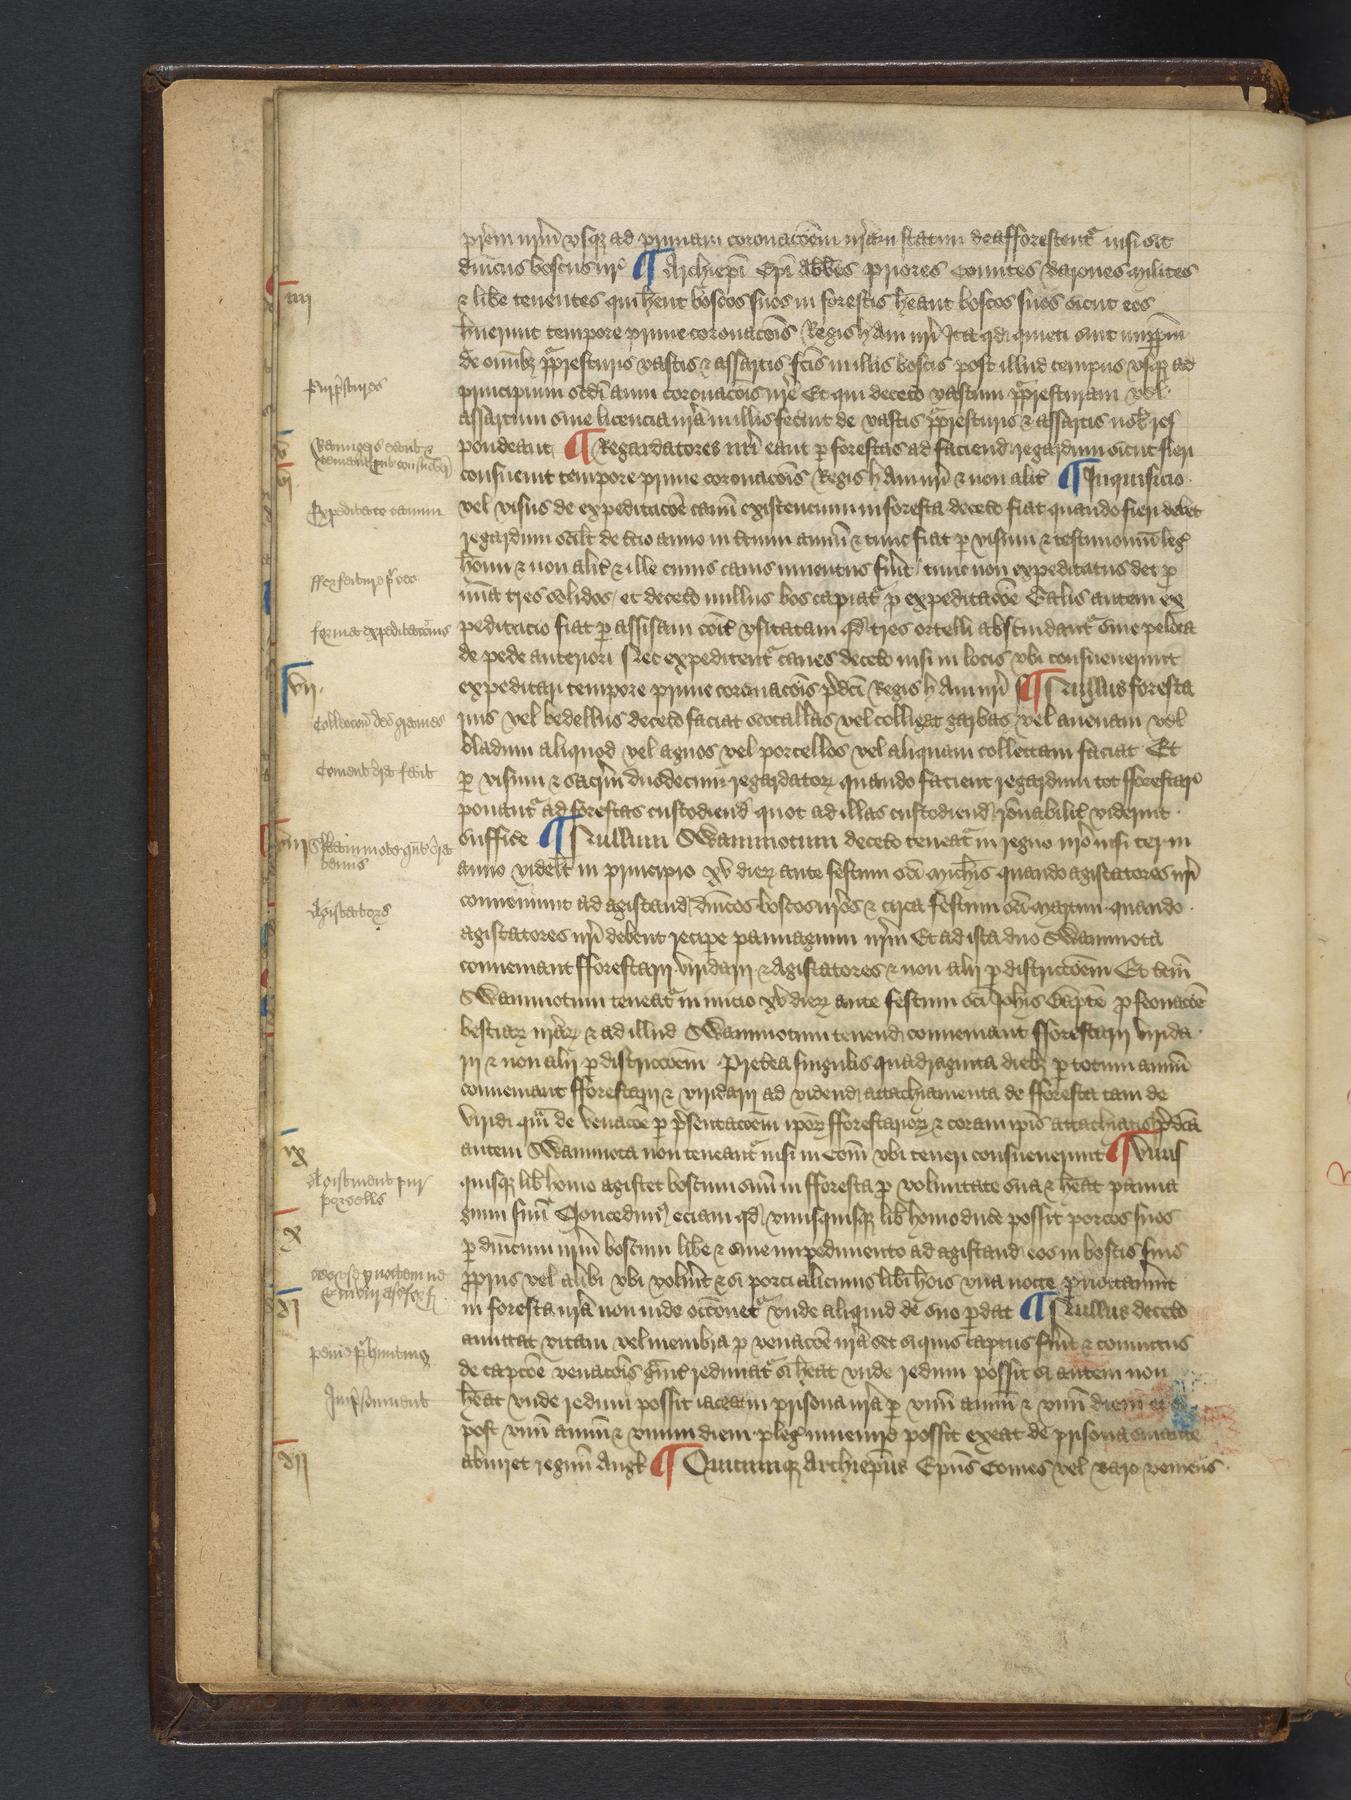 prem nr̄m vsq̢ ad primam coronacoēm nr̄am statim deafforestent᷑ nisi sit
dn̄icus boscus nr̄ ¶ Archiep̄i Ep̄i Abb̄es Priores Comites Barones milites
iiij
⁊ lib̄e tenentes qui hēnt boscos suos in forestis hēant boscos suos sicut eos
hūerunt tempore prime coronacōis Regis H Aui nr̄i Ita qd̄ quieti sint imp̄p̄m
de omīb̢ p̄presturis vastis ⁊ assartis fc̄is in illis boscis post illud tempus vsq̢ ad
Purprestures
principium scd̄i anni coronacōis nr̄e Et qui deceto vastum p̄presturam vel
assartum sine licencia nr̄a in illis fecint de vastis p̄presturis ⁊ assartis nob̄ res
v
pondeant ¶ Regardatores nr̄i eant p forestas ad faciend regardum sicut fieri
vj
consueuit tempore prime coronacōis Regis H Aui nr̄i ⁊ non alit᷑ ¶ Inquisicio
Expeditate canum
vel visus de expeditacōe canū existencium in foresta deceto fiat quando fieri debet
regardum scilt̄ de t̄cio anno in t̄cium annū ⁊ tunc fiat p visum ⁊ testimoniū leḡ
hōim ⁊ non alit᷑ ⁊ ille cuius canis inuentus fūit tunc non expeditatus det p
mīa tres solidos et deceto nullus bos capiat᷑ p expeditacōe Talis autem ex
peditacio fiat p assisam coīt᷑ vsitatam qd̄ tres ortelli abscindant᷑ sine pelota
de pede anteriori Nec expeditent᷑ canes deceto nisi in locis vbi consueuerunt
vij
expeditari tempore prime coronacōis p̄dc̄i Regis H Aui nr̄i ¶ Nullus foresta
rius vel bedellus deceto faciat scotallas vel colligat garbas vel auenam vel
bladum aliquod vel agnos vel porcellos vel aliquam collectam faciat Et
p visum ⁊ sacr̄m duodecim regardator̢ quando facient regardum tot fforestarii
ponant᷑ ad forestas custodiend quot ad illas custodiend rōnabilit᷑ viderint
viij
suffice ¶ Nullum Swanimotum deceto teneat᷑ in regno nr̄o nisi ter in
anno videlt̄ in principio xv dier̢ ante festum sc̄i Mich̄is quando agistatores nr̄i
Agistators
conueniunt ad agistand dn̄icos boscos nr̄os ⁊ circa festum sc̄i Martini quando
agistatores nr̄i debent recipe pannagium nr̄m Et ad ista duo Swanimota
conueniant fforestarij viridarij ⁊ Agistatores ⁊ non alij p districcōem Et t̄cm̄
Swanimotum teneat᷑ in inicio xv dier̢ ante festum sc̄i Joh̄is Bap̄te p feonacōe
bestiar̢ nr̄ar̢ ⁊ ad illud Swanimotum tenend conueniant fforestarij virida
rij ⁊ non alij p districcōem Pretea singulis quadraginta dieb̢ p totum annū
conueniant fforestarij ⁊ viridarij ad vidend attachiamenta de fforesta tam de
viridi qm̄ de venacōe p p̄sentacōem ipor̢ fforestarior̢ ⁊ coram ip̄is attachiatis p̄dc̄a
ix
autem Swanimota non teneant᷑ nisi in Com̄ vbi teneri consueuerunt ¶ Vnus
quisq̢ lib̄ homo agistet boscum suū in fforesta p voluntate sua ⁊ hēat panna
x
gium suū Concedim᷒ eciam qd̄ vnusquisq̢ lib̄ homo duce possit porcos suos
p dn̄icum nr̄m boscum lib̄e ⁊ sine impedimento ad agistand eos in boscis suis
p̄priis vel alibi vbi volūit ⁊ si porci alicuius lib̄i hōis vna nocte p̄noctauint
xj
in foresta nr̄a non inde occōnet᷑ vnde aliquid de suo p̄dat ¶ Nullus deceto
amittat vitam vel membra p venacōe nr̄a set si quis captus fūit ⁊ conuictus
de capcōe venacōis g̃uit᷑ redimat᷑ si hēat vnde redimi possit si autem non
Imp̄sonment
hēat vnde redimi possit iaceat in prisona nr̄a p vnū annū ⁊ vnū diem et si
post vnū annū ⁊ vnum diem pleḡ inuenire possit exeat de prisona sin autē
xij
abiuret regnū Angl̄ ¶ Quicumq̢ Archiep̄us Ep̄us Comes vel Baro veniens